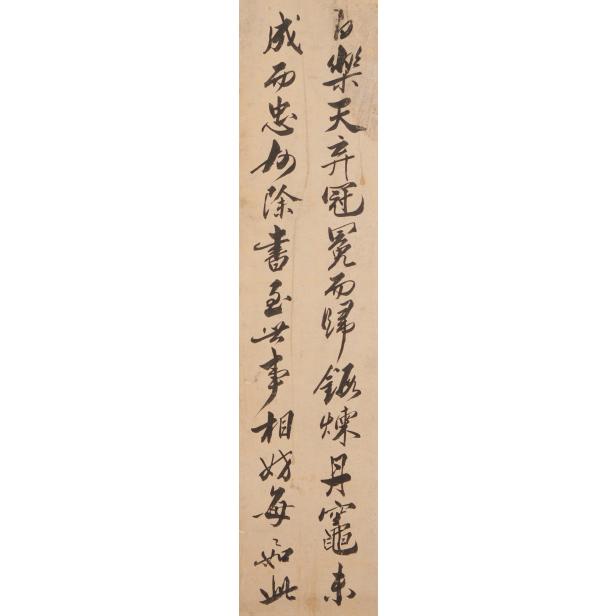 白樂天弃冠冕而歸鍜煉丹竈未
成而忠州除書至世事相妨每如此